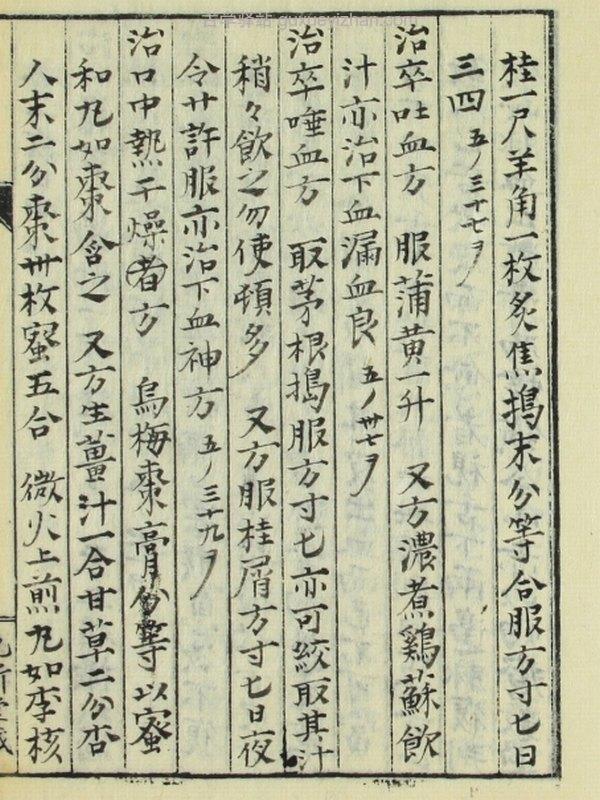 古学驿站 guxueyizhan.com
桂一尺羊角一枚炙焦搗末分等合服方寸匕日
三四 五ノ三十七ヲ
治卒吐血方 服蒲黄一升 又方濃煮鶏蘇飲
汁亦治下血漏血良 五ノ卅七ヲ
治卒唾血方 取茅根搗服方寸匕亦可絞取其汁
稍々飲之勿使頓多 又方服桂屑方寸匕日夜
令廿許服亦治下血神方 五ノ三十九ヲ
治口中熱干燥者方 烏梅棗膏分等以蜜
和丸如棗含之 又方生薑汁一合甘草二分杏
人末二分棗卅枚蜜五合 微火上煎丸如李核